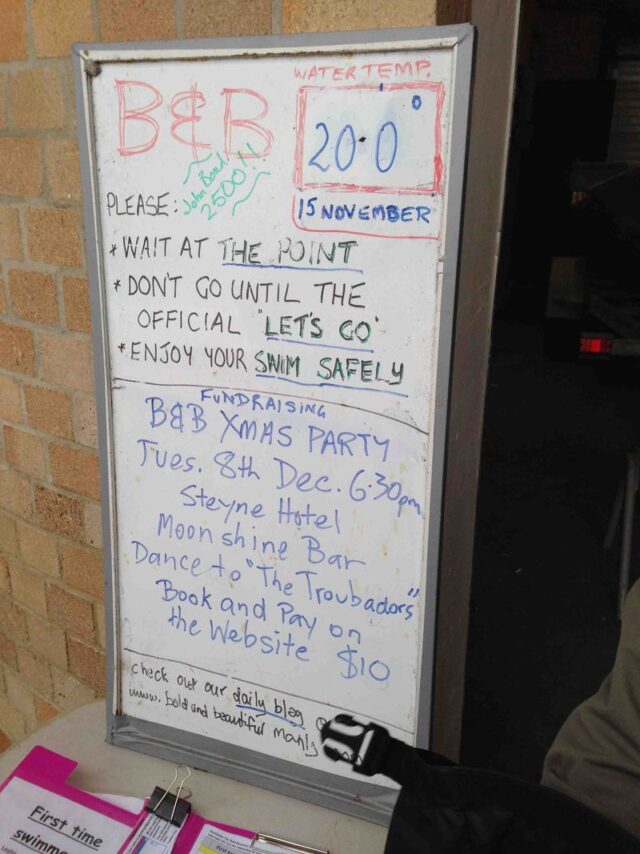 WATER TEMP.
B&B
20.0°
15 NOVEMBER
John Bond
2500!!
PLEASE:
* WAIT AT THE POINT
* DON'T GO UNTIL THE
OFFICIAL "LET'S GO"
* ENJOY YOUR SWIM SAFELY
FUNDRAISING
B&B XMAS PARTY
Tues. 8th Dec. 6.30pm
Steyne Hotel
Moonshine Bar
Dance to "The Troubadors"
Book and Pay on
the Website $10
check out our daily blog @
www. bold and beautiful manly
First time
swimme